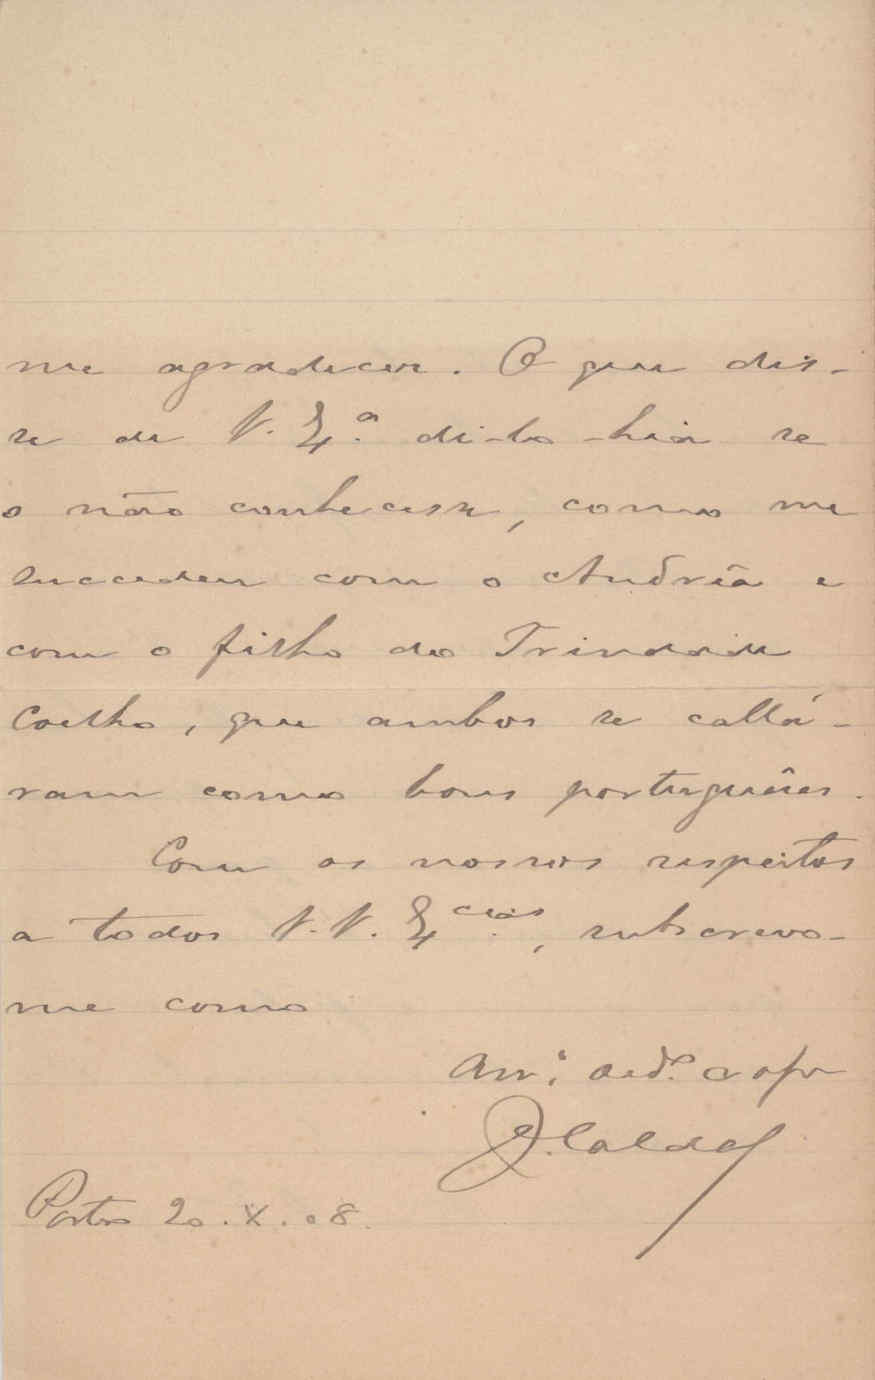 me agradecer. O que dis-
se de V. Ex.ª di-lo-hia se
o não conhecesse, como me
succedeu com o Andréa e
com o filho do Trindade
Coelho, que ambos se callá-
ram como bons portuguêses.
Com os nossos respeitos
a todos V. V. Ex.cias, subscrevo-
me como
Am.º
Caldas
Porto 20.X.08.